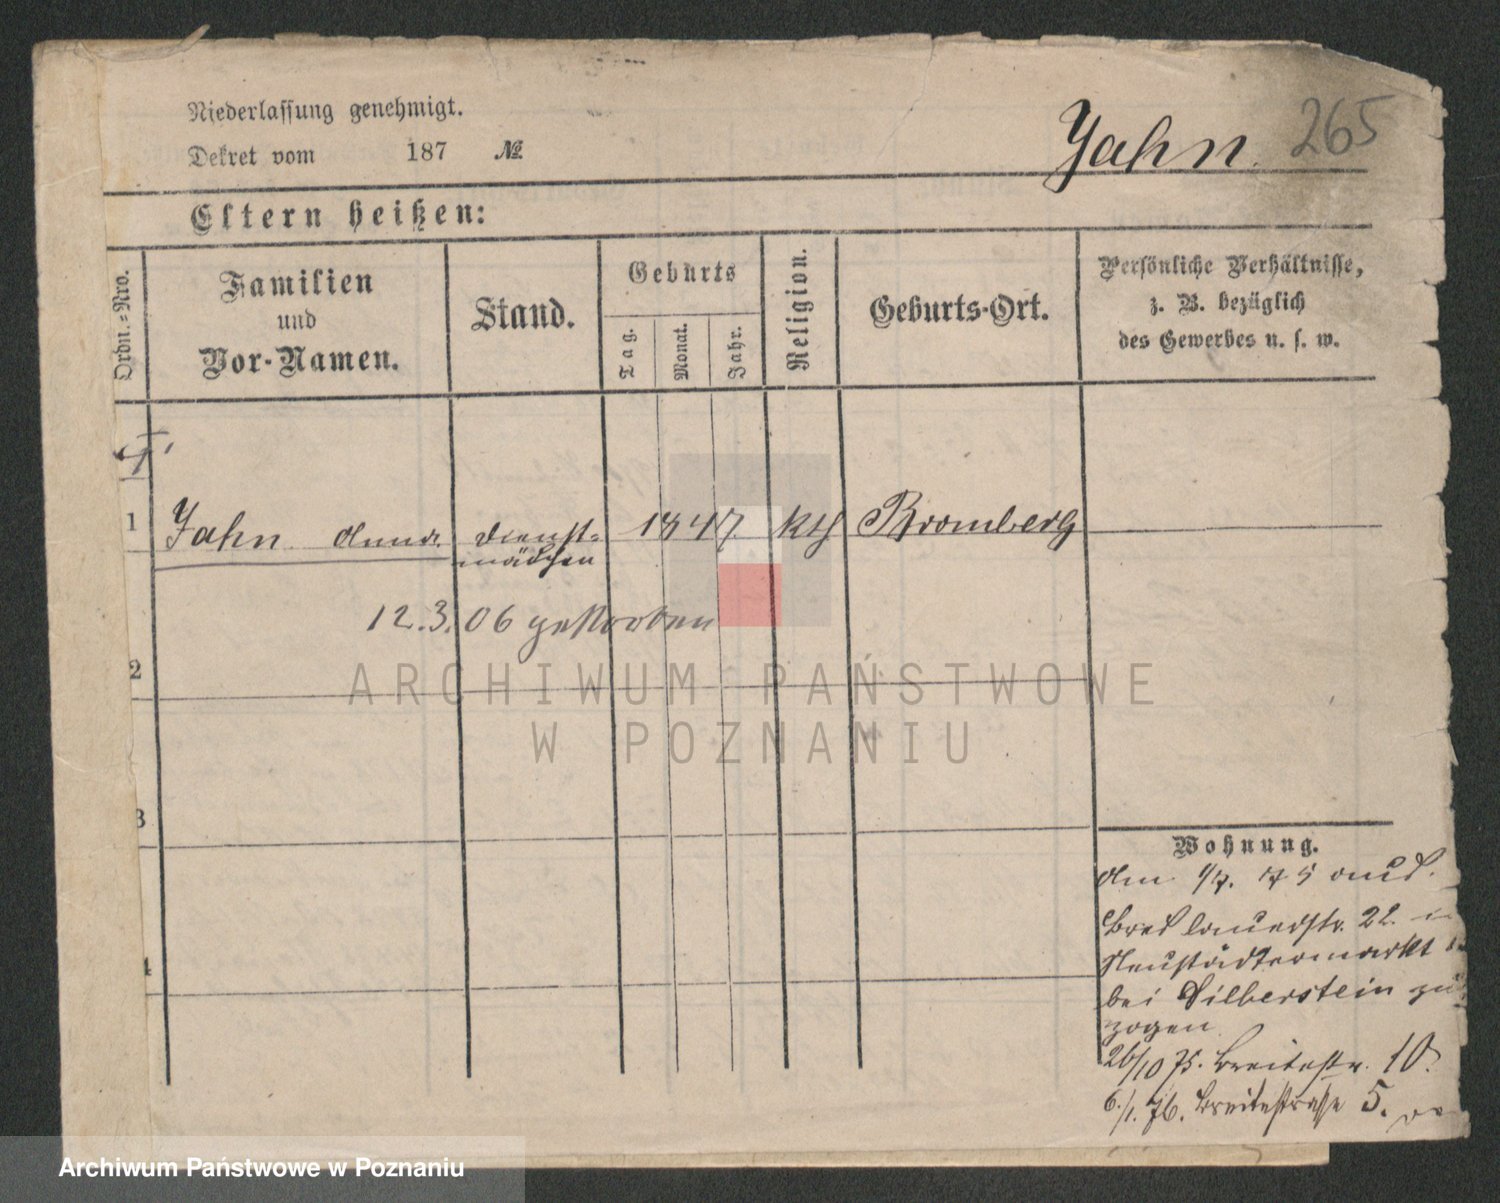 Niederlassung genehmigt.
Dekret vom 187 №
Jahn. 265
Eltern heißen:
Ordn.-Nro.
Familien
und
Vor-Namen.
Stand.
Geburts
Tag.
Monat.
Jahr.
Religion.
Geburts-Ort.
Persönliche Verhältnisse,
z. B. bezüglich
des Gewerbes u. s. w.
1 Jahn Dienst- 1847. kth Bromberg
mädchen
12.3.06 gestorben
2
ARCHIWUM PAŃSTWOWE
W POZNANIU
3
Wohnung.
75
Breslauerstr. 22
Neustädtermarkt
bei Silberstein
zogen
26/10 75. Breitestr. 10.
6./1. 76. Breitestrasse 5.
4
Archiwum Państwowe w Poznaniu